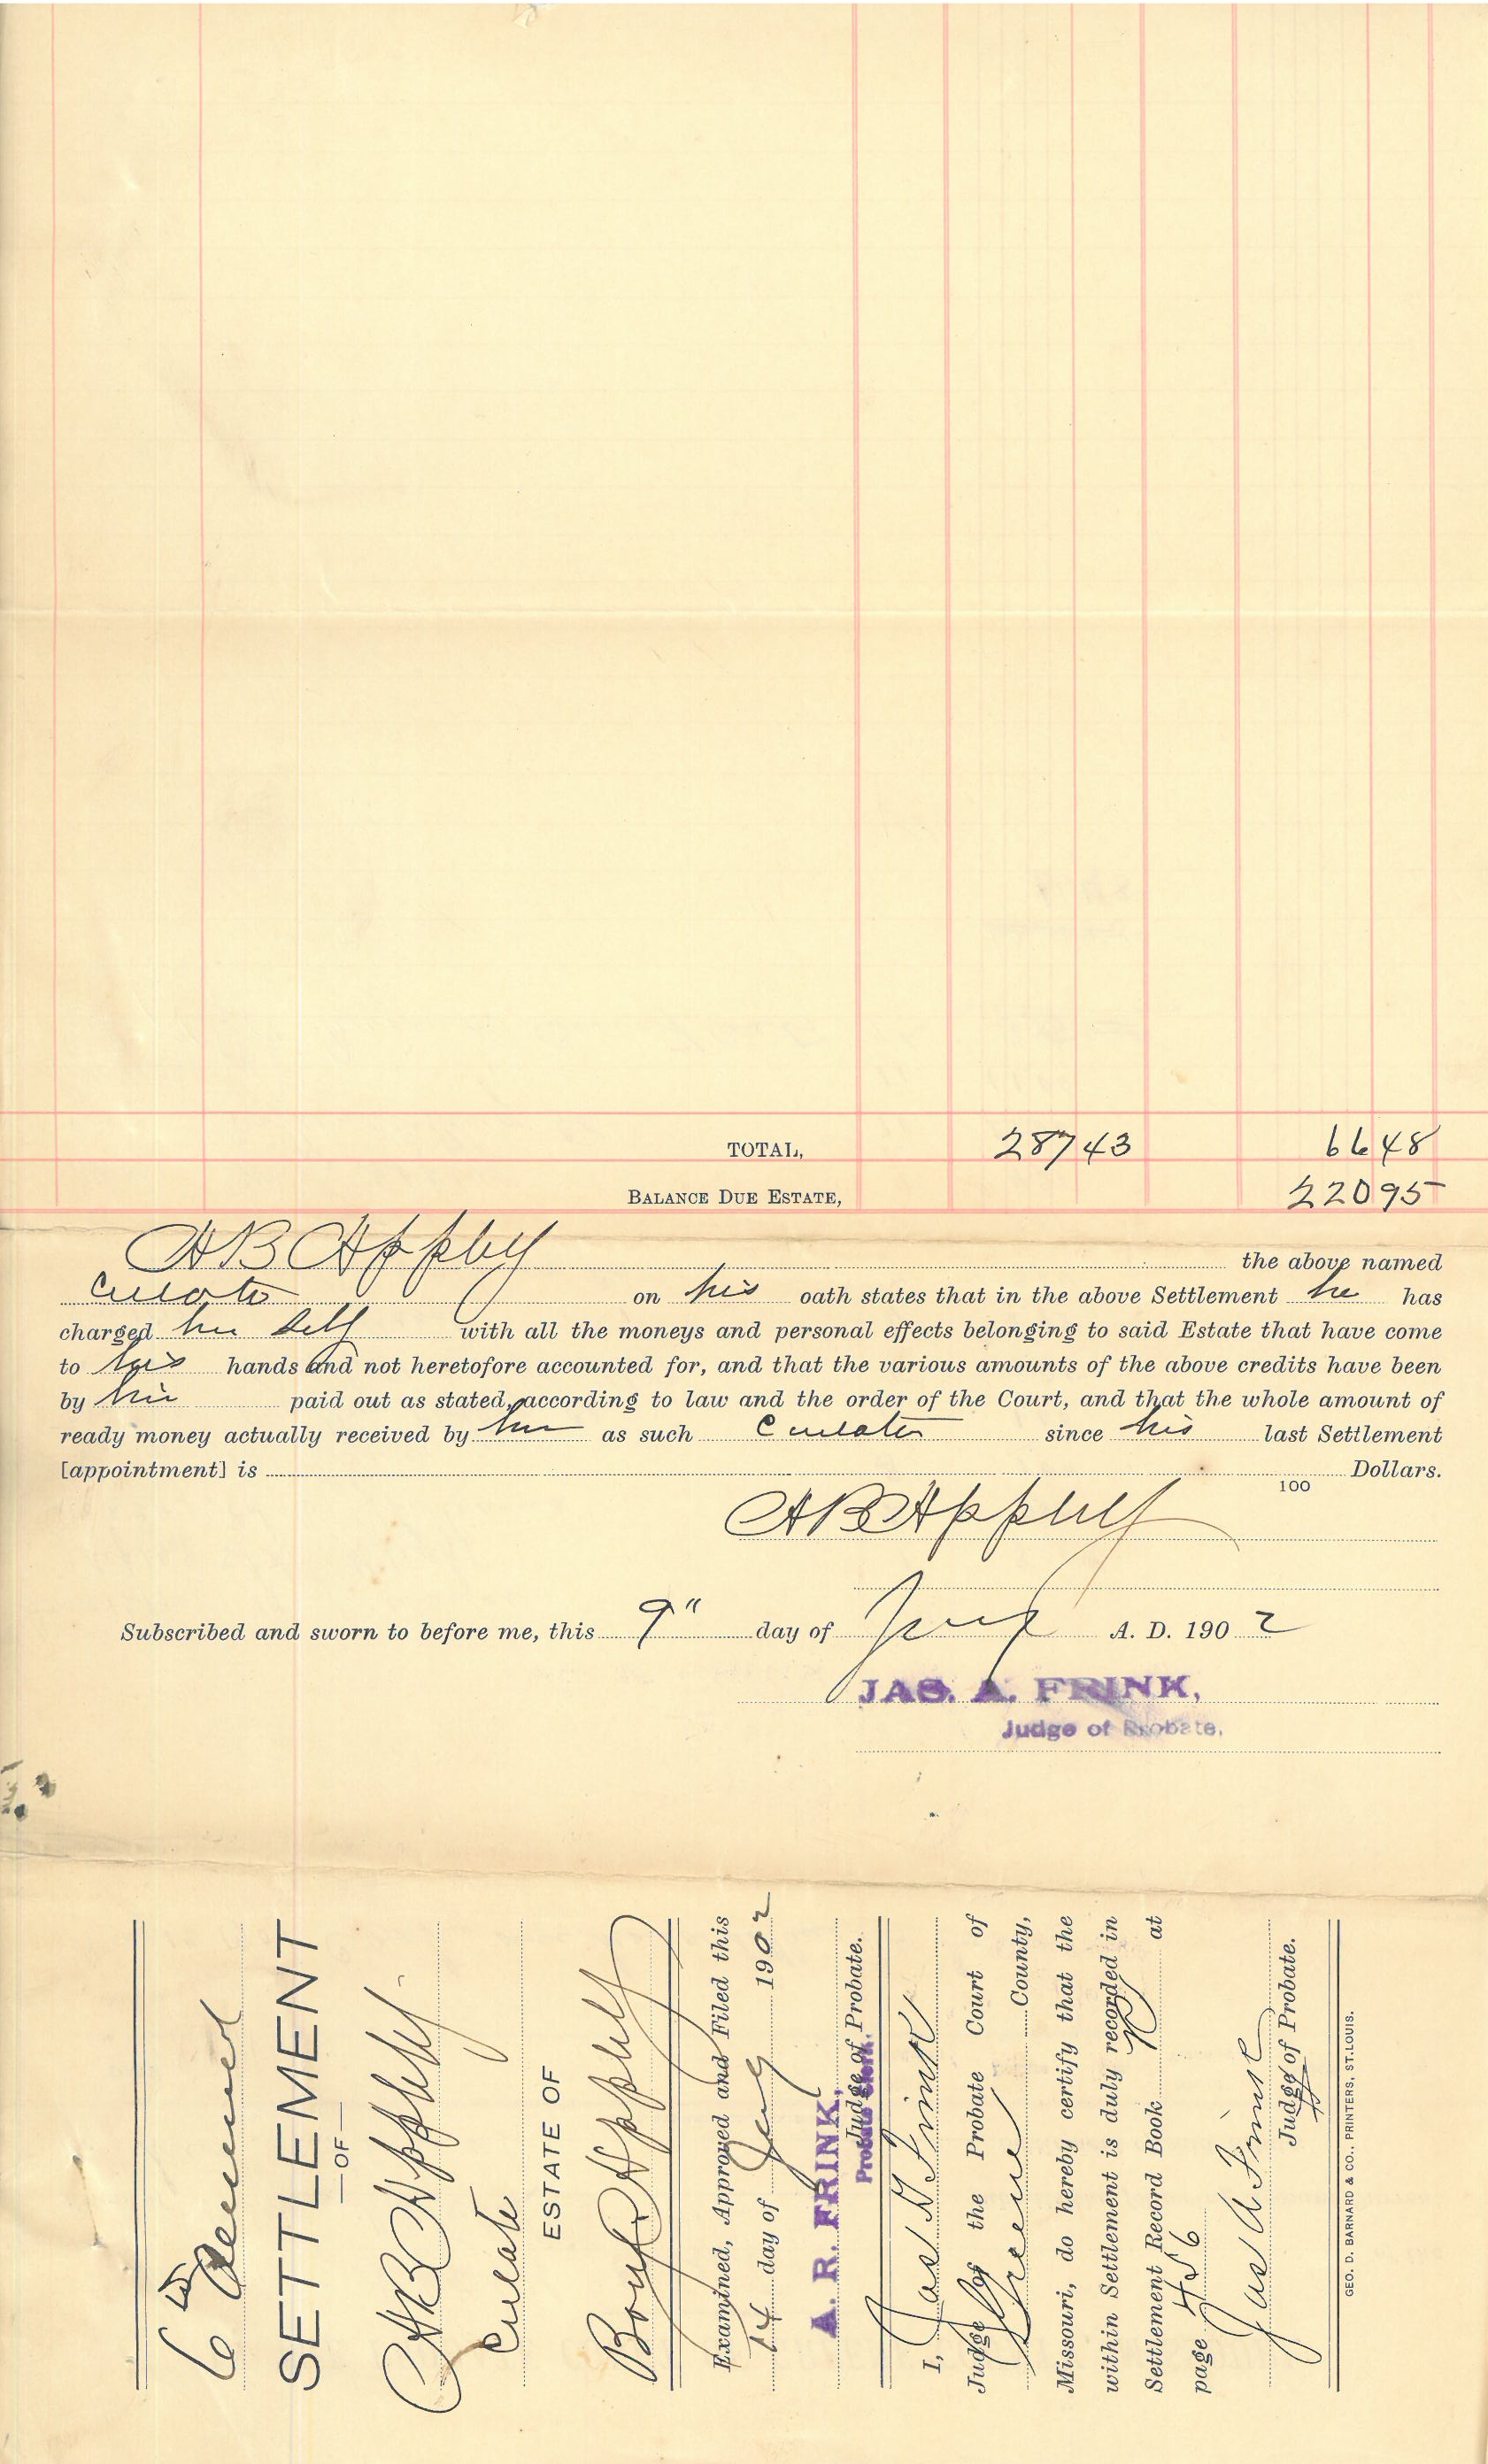 TOTAL, 287 43 66 48
BALANCE DUE ESTATE, 220 95
A B Appleby the above named
Curator on his oath states that in the above Settlement he has
charged him self with all the moneys and personal effects belonging to said Estate that have come
to his hands and not heretofore accounted for, and that the various amounts of the above credits have been
by him paid out as stated, according to law and the order of the Court, and that the whole amount of
ready money actually received by him as such Curator since his last Settlement
[appointment] is Dollars.
100
A B Appleby
Subscribed and sworn to before me, this 9" day of A. D. 190 2
JAS. A. FRINK,
Judge of Probate.
6th Annual
SETTLEMENT
—OF—
A B Appleby
Curator
ESTATE OF
Appleby
Examined, Approved and Filed this
14 day of 1902
A. R. FRINK,
Judge of Probate.
Probate Clerk.
I, Jas A Frink
Judge of the Probate Court of
Greene County,
Missouri, do hereby certify that the
within Settlement is duly recorded in
Settlement Record Book at
page 456
Jas A Frink
Judge of Probate.
GEO. D. BARNARD & CO., PRINTERS, ST. LOUIS.